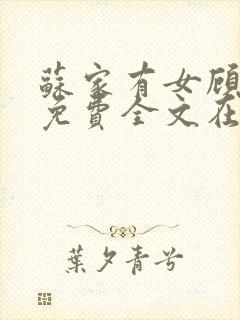 蘇家有女顧
免費全文在
葉夕青兮